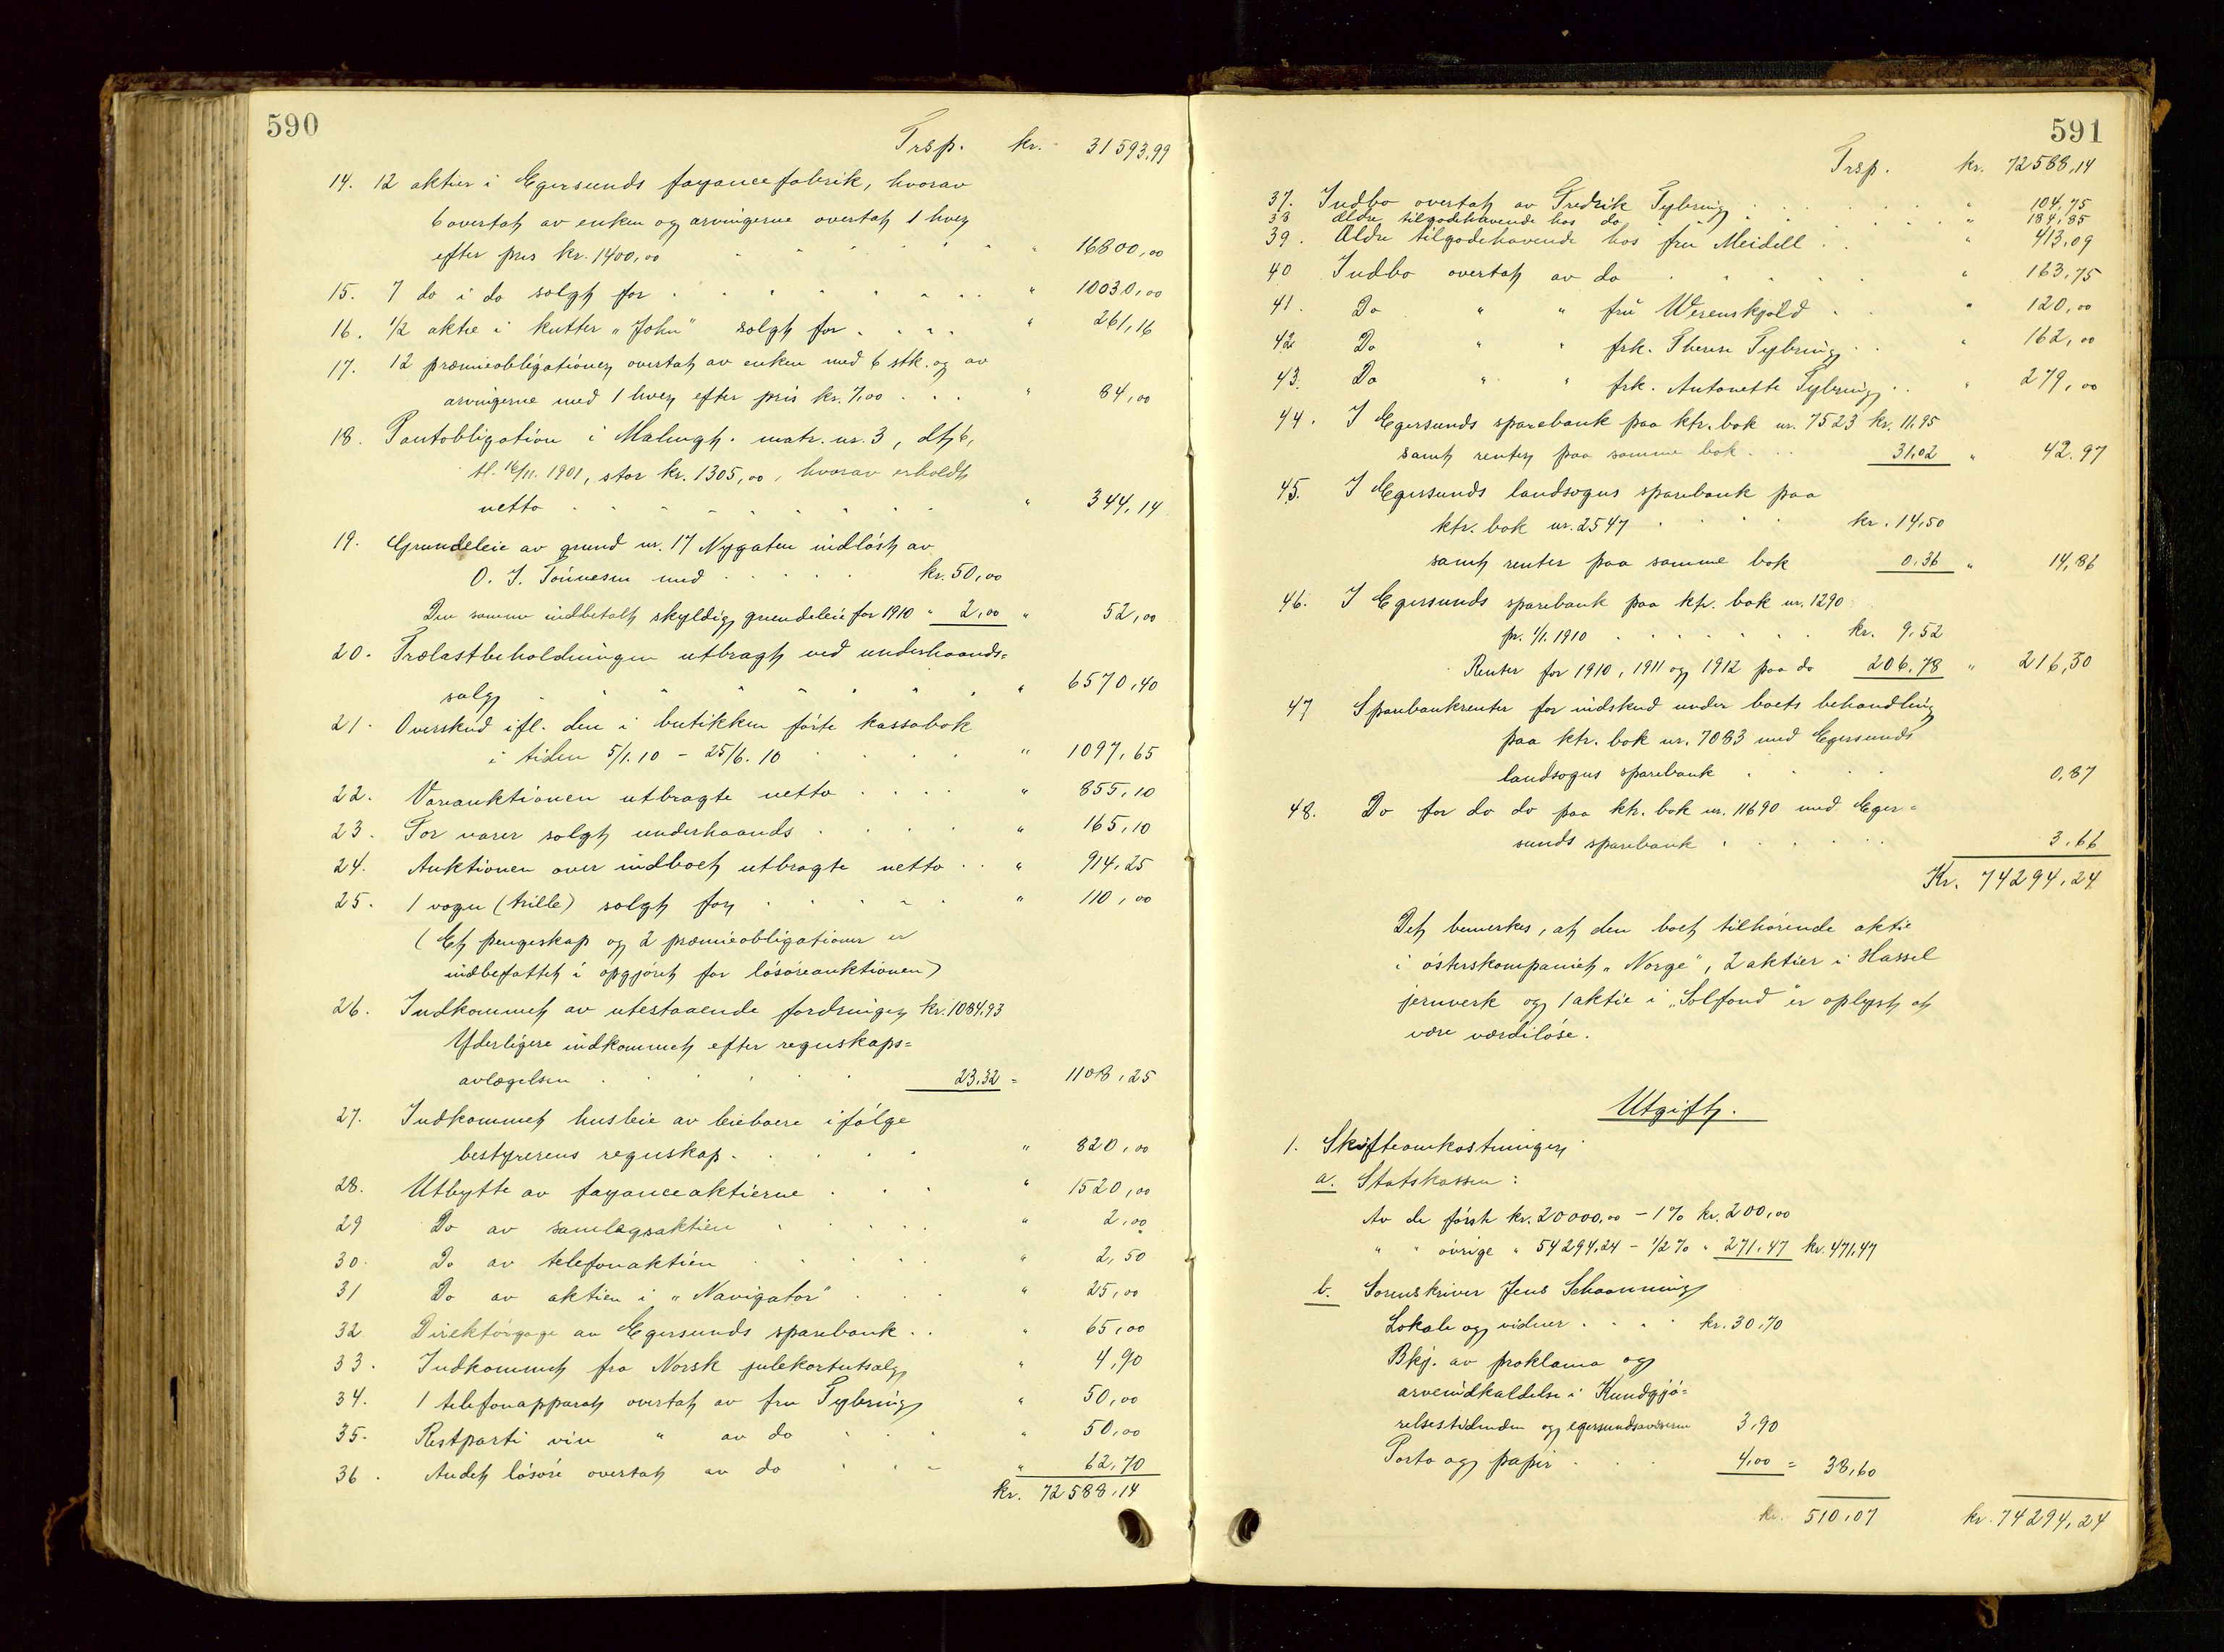 590
Trsp. kr. 31593,99
14. 12 aktier i Egersunds fayancefabrik, hvorav
6 overtat av enken og arvingerne overtat 1 hver
efter pris kr. 1400,00 " 16800,00
15. 7 do i do solgt for " 10030,00
16. 1/2 aktie i kutter "John" solgt for " 261,16
17. 12 præmieobligationer overtat av enken med 6 stk. og av
arvingerne med 1 hver efter pris kr. 7,00 " 84,00
18. Pantobligation i matr. nr. 3,
16/11. 1901, stor kr. 1305,00, hvorav erholdt
netto " 344,14
19. Grundeleie av grund nr. 17 Nygaten indløst av
O. J. Tønnesen med kr. 50,00
Den samme indbetalt skyldig grundeleie for 1910 " 2,00 " 52,00
20. Trælastbeholdningen utbragt ved underhaands=
salg " 6570,40
21. Overskud ifl. den i butikken førte kassabok
i tiden 5/1.10 - 25/6.10 " 1097,65
22. Vareauktionen utbragte netto " 855,10
23. For varer solgt underhaands " 165,10
24. Auktionen over indboet utbragte netto " 914,25
25. 1 vogn (trille) solgt for " 110,00
(Et pengeskap og 2 præmieobligationer er
indbefattet i opgjøret for løsøreauktionen)
26. Indkommet av utestaaende fordringer kr. 1084,93
Yderligere indkommet efter regnskaps=
avlæggelsen 23,32 = 1108,25
27. Indkommet husleie av leieboere ifølge
bestyrerens regnskap " 820,00
28. Utbytte av fayanceaktierne " 1520,00
29 Do av samlagsaktien " 2,00
30. Do av telefonaktien " 2,50
31 Do av aktien i "Navigator" " 25,00
32 Direktørgage av Egersunds sparebank " 65,00
33. Indkommet fra Norsk julekortutsalg " 4,90
34. 1 telefonapparat overtat av fru Tybring " 50,00
35. Restparti vin " av do " 50,00
36. Andet løsøre overtat av do " 62,70
kr. 72588,14
591
Trsp. kr. 72588,14
37. Indbo overtat av Fredrik Tybring " 104,75
38 Ældre tilgodehavende hos do " 184,85
39. Ældre tilgodehavende hos fru Meidell " 413,09
40 Indbo overtat av do " 163,75
41. Do " " fru Werenskjold " 120,00
42 Do " " frk. Therese Tybring " 162,00
43. Do " " frk. Antonette Tybring " 279,00
44. I Egersunds sparebank paa ktr. bok nr. 7523 kr. 11,95
samt renter paa samme bok 31,02 " 42,97
45. I Egersunds landsogns sparebank paa
ktr. bok nr. 2547 kr. 14,50
samt renter paa samme bok 0,36 " 14,86
46. I Egersunds sparebank paa ktr. bok nr. 1290
pr. 1/1. 1910 kr. 9,52
Renter for 1910, 1911 og 1912 paa do 206,78 " 216,30
47 Sparebankrenter for indskud under boets behandling
paa ktr. bok nr. 7083 med Egersunds
landsogns sparebank 0,87
48. Do for do do paa ktr. bok nr. 11690 med Eger=
sunds sparebank 3,66
Kr. 74294,24
Det bemerkes, at den boet tilhørende aktie
i østerskompaniet "Norge", 2 aktier i Hassel
jernverk og 1 aktie i "Solfond" er oplyst at
være værdiløse.
Utgift.
1. Skifteomkostninger
a. Statskassen:
Av de første kr. 20000,00 - 1% kr. 200,00
" " øvrige " 54294,24 - 1/2% " 271,47 kr. 471,47
b. Sorenskriver Jens Schaanning
Lokale og vidner kr. 30,70
Bkj. av proklama og
arveindkaldelse i Kundgjø=
relsestidenden og egersundsaviserne 3,90
Porto og papir 4,00 = 38,60
kr. 510,07 kr. 74294,24